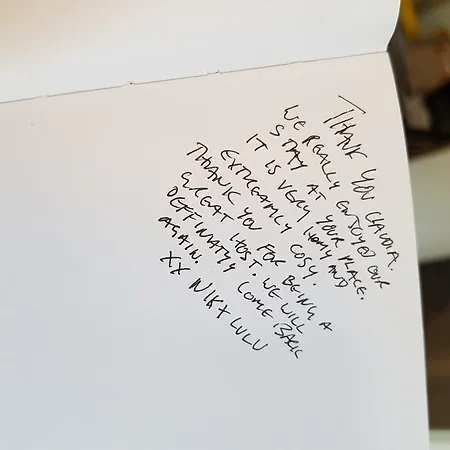 THANK YOU CLAUDIA.
WE REALLY ENJOYED OUR
STAY AT YOUR PLACE.
IT IS VERY HOMY AND
EXTREAMLY COSY.
THANK YOU FOR BEING A
GREAT HOST. WE WILL
DEFFINATLY COME BACK
AGAIN.
XX NIK + LULU